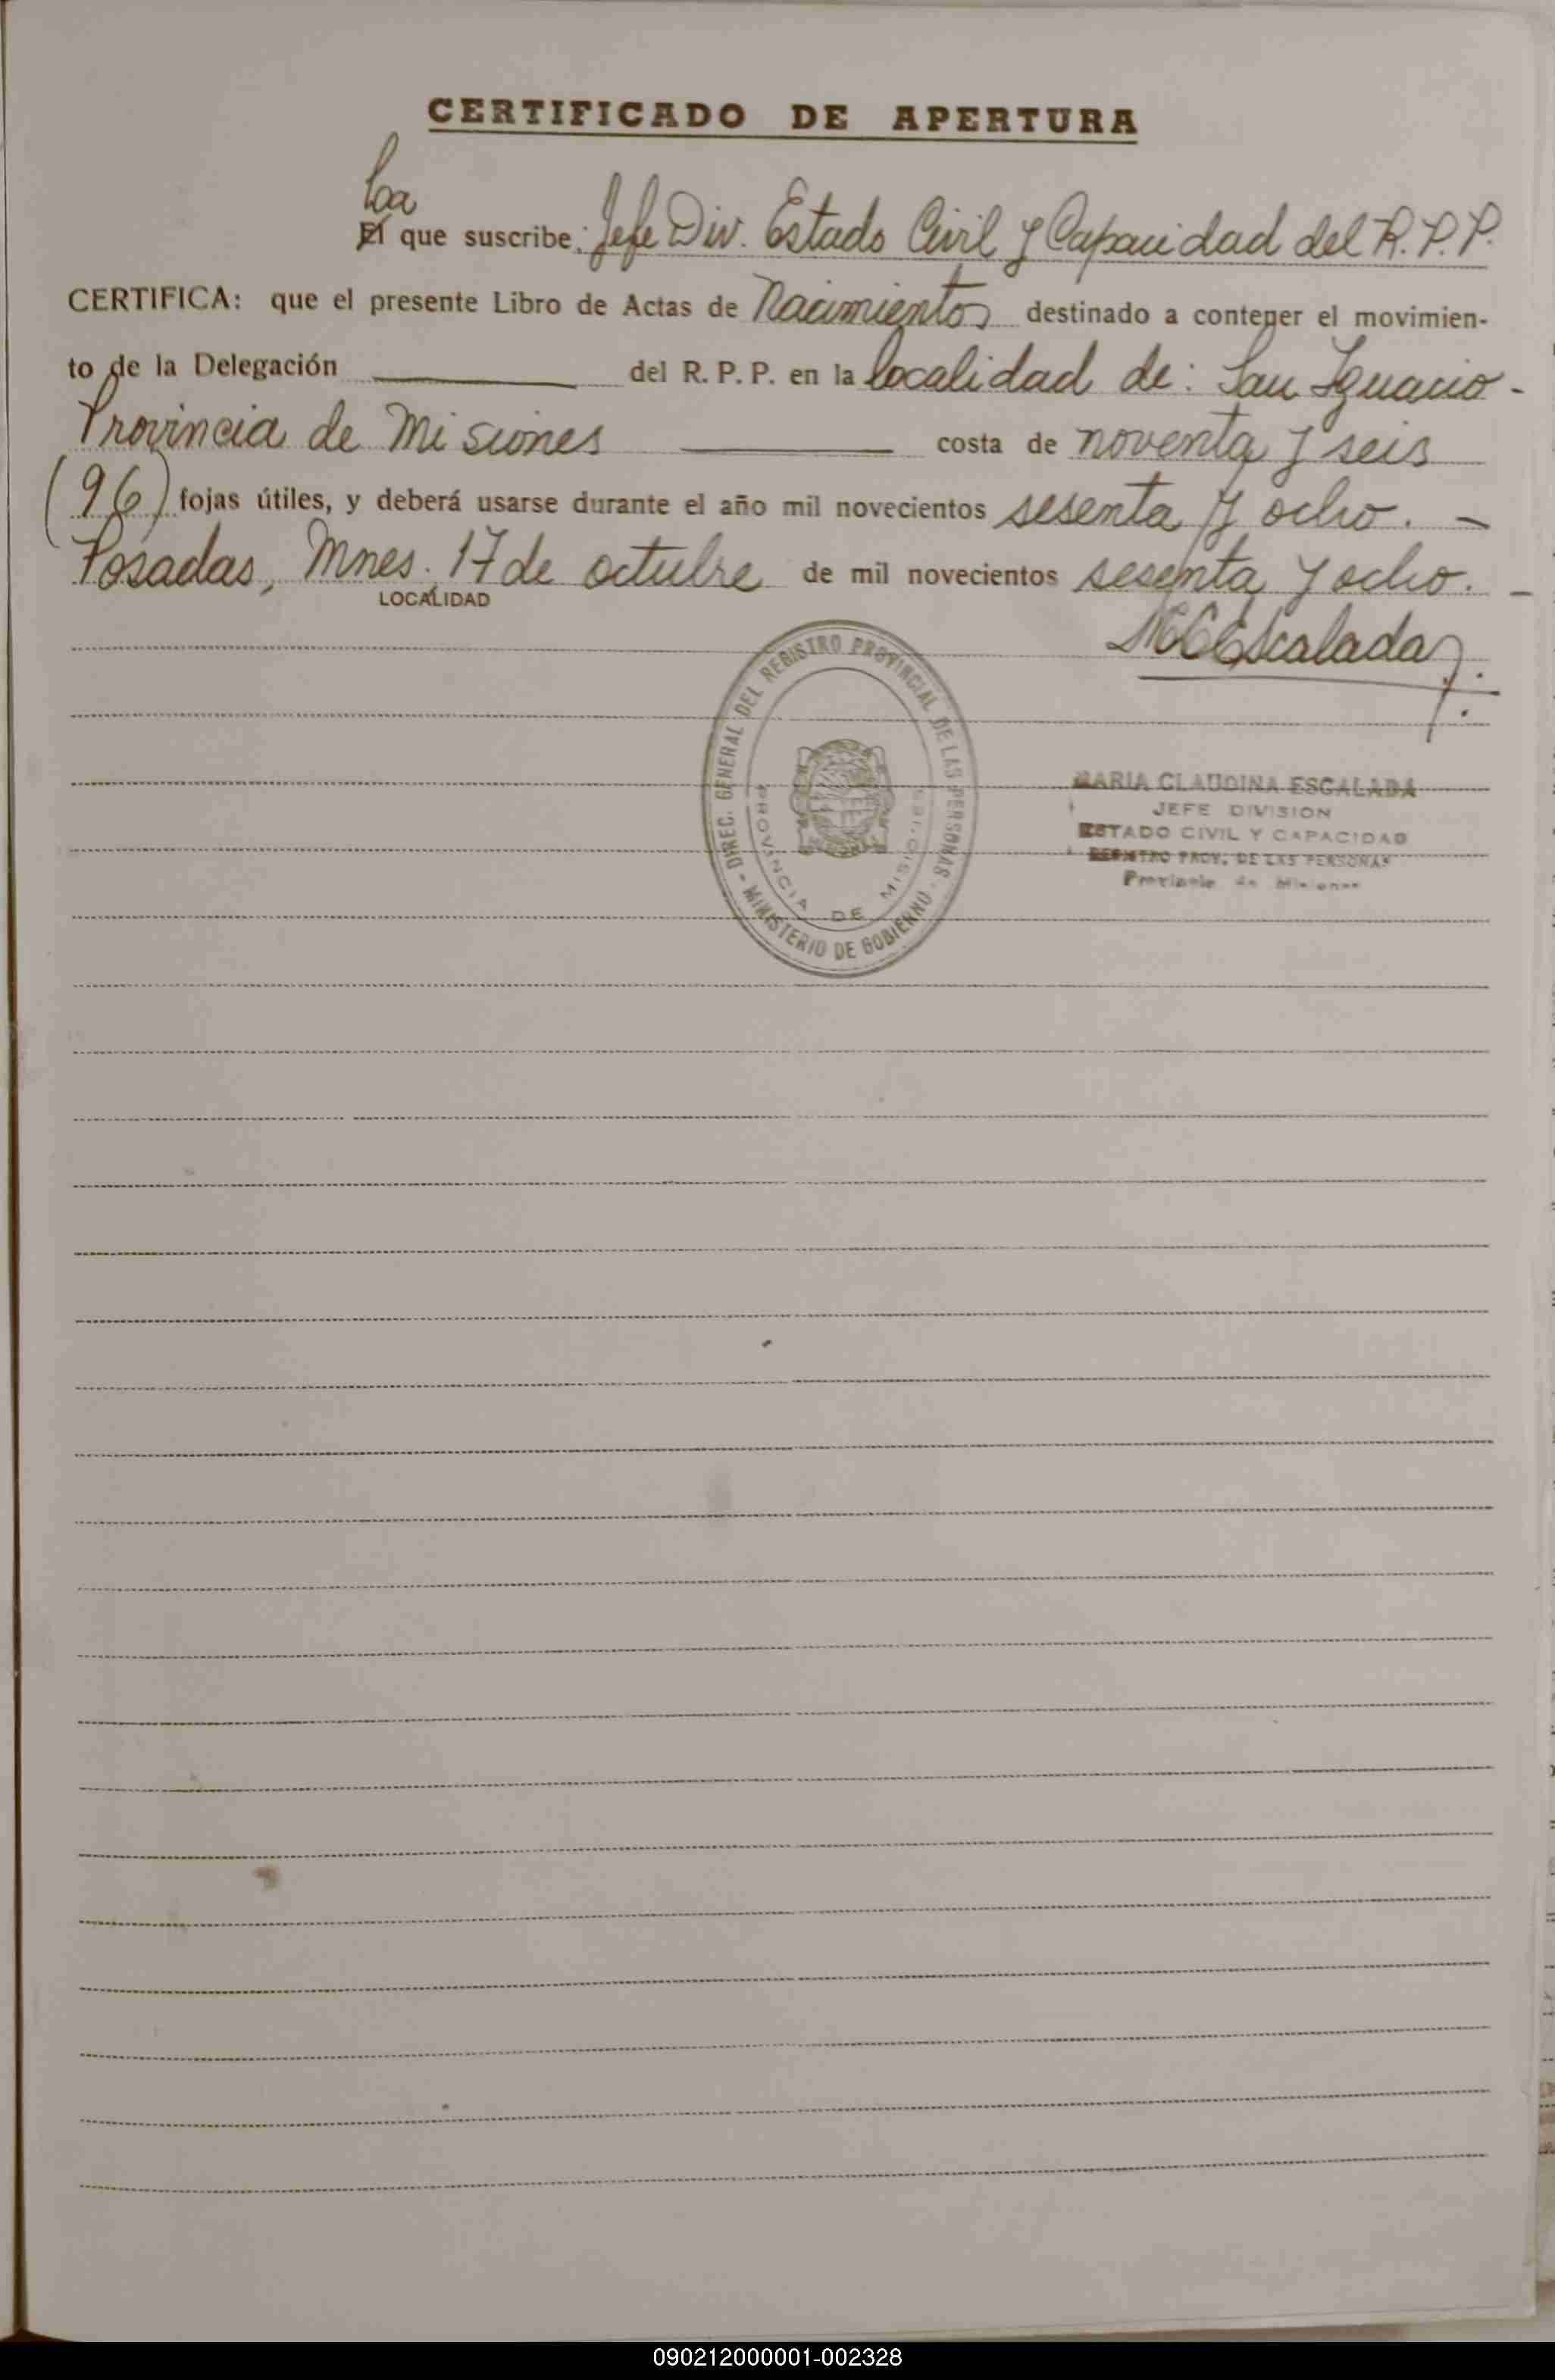 CERTIFICADO DE APERTURA
La
El que suscribe: Jefe Div. Estado Civil y Capacidad del R.P.P.
CERTIFICA: que el presente Libro de Actas de Nacimientos destinado a contener el movimien-
to de la Delegación del R. P. P. en la localidad de: San Ignacio -
Provincia de Misiones costa de noventa y seis
(96) fojas útiles, y deberá usarse durante el año mil novecientos sesenta y ocho. -
Posadas, Mnes. 17 de octubre de mil novecientos sesenta y ocho. -
LOCALIDAD
MCEscalada
DIREC. GENERAL DEL REGISTRO PROVINCIAL DE LAS PERSONAS - MINISTERIO DE GOBIERNO -
PROVINCIA DE MISIONES
MARIA CLAUDINA ESCALADA
JEFE DIVISION
ESTADO CIVIL Y CAPACIDAD
REGISTRO PROV. DE LAS PERSONAS
Provincia de Misiones
090212000001-002328